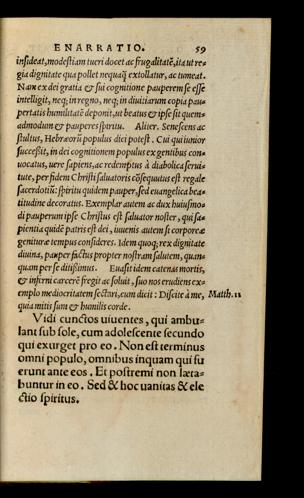 ENARRATIO. 59
insideat, modestiam tueri docet ac frugalitatē, ita ut re-
gia dignitate qua pollet nequaꝗ̃ extollatur, ac tumeat.
Nam ex dei gratia & sui cognitione pauperem se esse
intelligit, neq; in regno, neq; in diuitiarum copia pau-
pertatis humilitatē deponit, ut beatus & ipse sit quem-
admodum & pauperes spiritu. Aliter. Senescens ac
stultus, Hebræorū populus dici potest. Cui qui iunior
successit, in dei cognitionem populus ex gentibus con-
uocatus, uere sapiens, ac redemptus à diabolica serui-
tute, per fidem Christi saluatoris cōsequutus est regale
sacerdotiū: spiritu quidem pauper, sed euangelica bea-
titudine decoratus. Exemplar autem ac dux huiusmo-
di pauperum ipse Christus est saluator noster, qui sa-
pientia quidē patris est dei, iuuenis autem si corporeæ
genituræ tempus consideres. Idem quoq; rex dignitate
diuina, pauper factus propter nostram salutem, quan-
quam per se ditissimus. Euasit idem catenas mortis,
& inferni carcerē fregit ac soluit, suo nos erudiens ex-
emplo mediocritatem sectari, cum dicit: Discite à me, Matth. 11
quia mitis sum & humilis corde.
Vidi cunctos uiuentes, qui ambu-
lant sub sole, cum adolescente secundo
qui exurget pro eo. Non est terminus
omni populo, omnibus inquam qui fu
erunt ante eos. Et postremi non læta-
buntur in eo. Sed & hoc uanitas & ele
ctio spiritus.